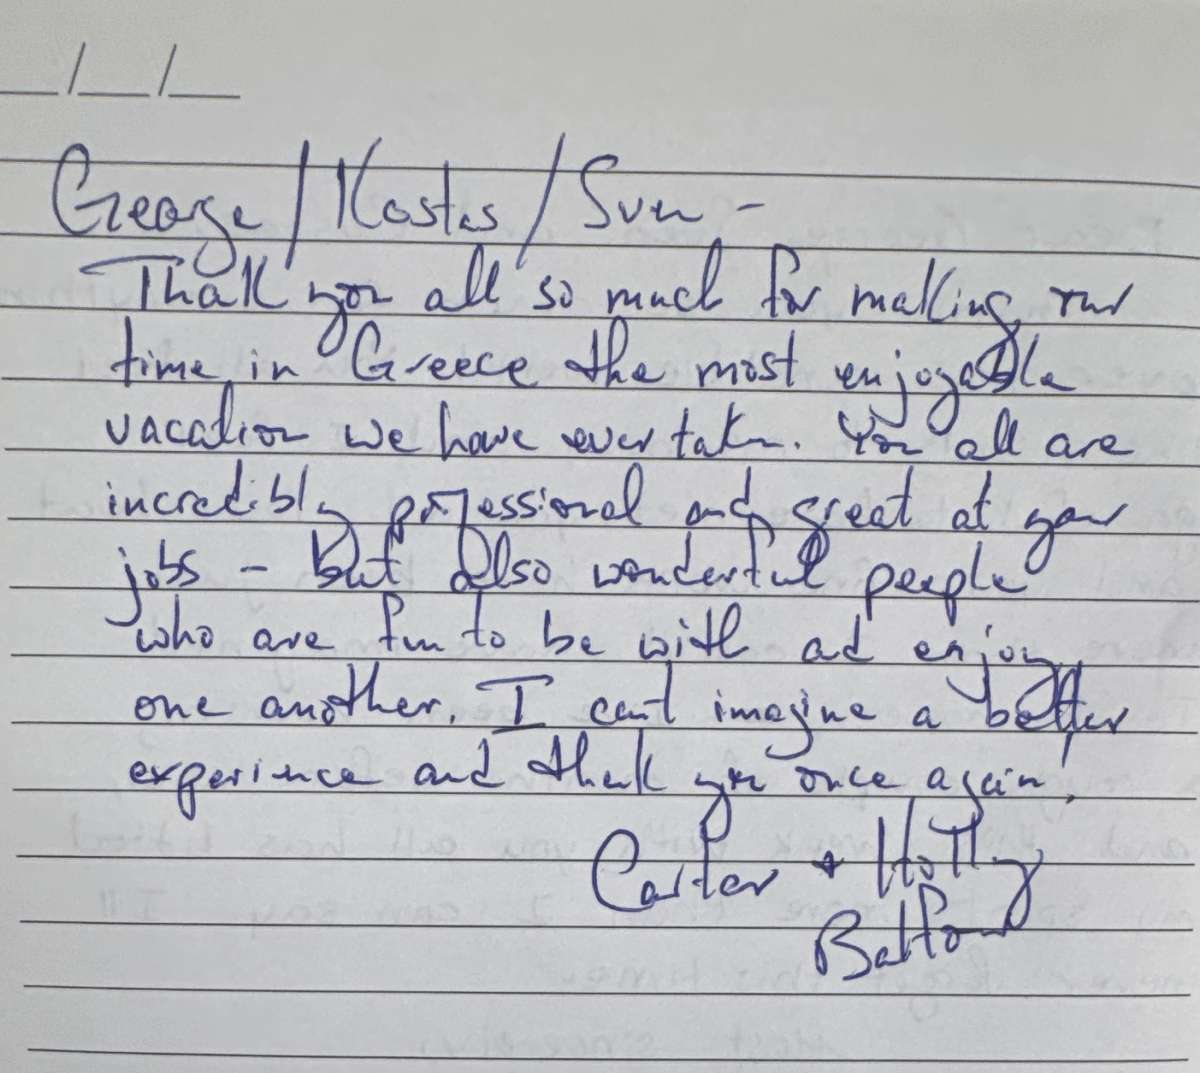 __/__/__
George/Kostas/Sven -
Thank you all so much for making our
time in Greece the most enjoyable
vacation we have ever taken. You all are
incredibly professional and great at your
jobs - but also wonderful people
who are fun to be with and enjoy
one another. I can't imagine a better
experience and thank you once again!
Carter + Holly
Balfour